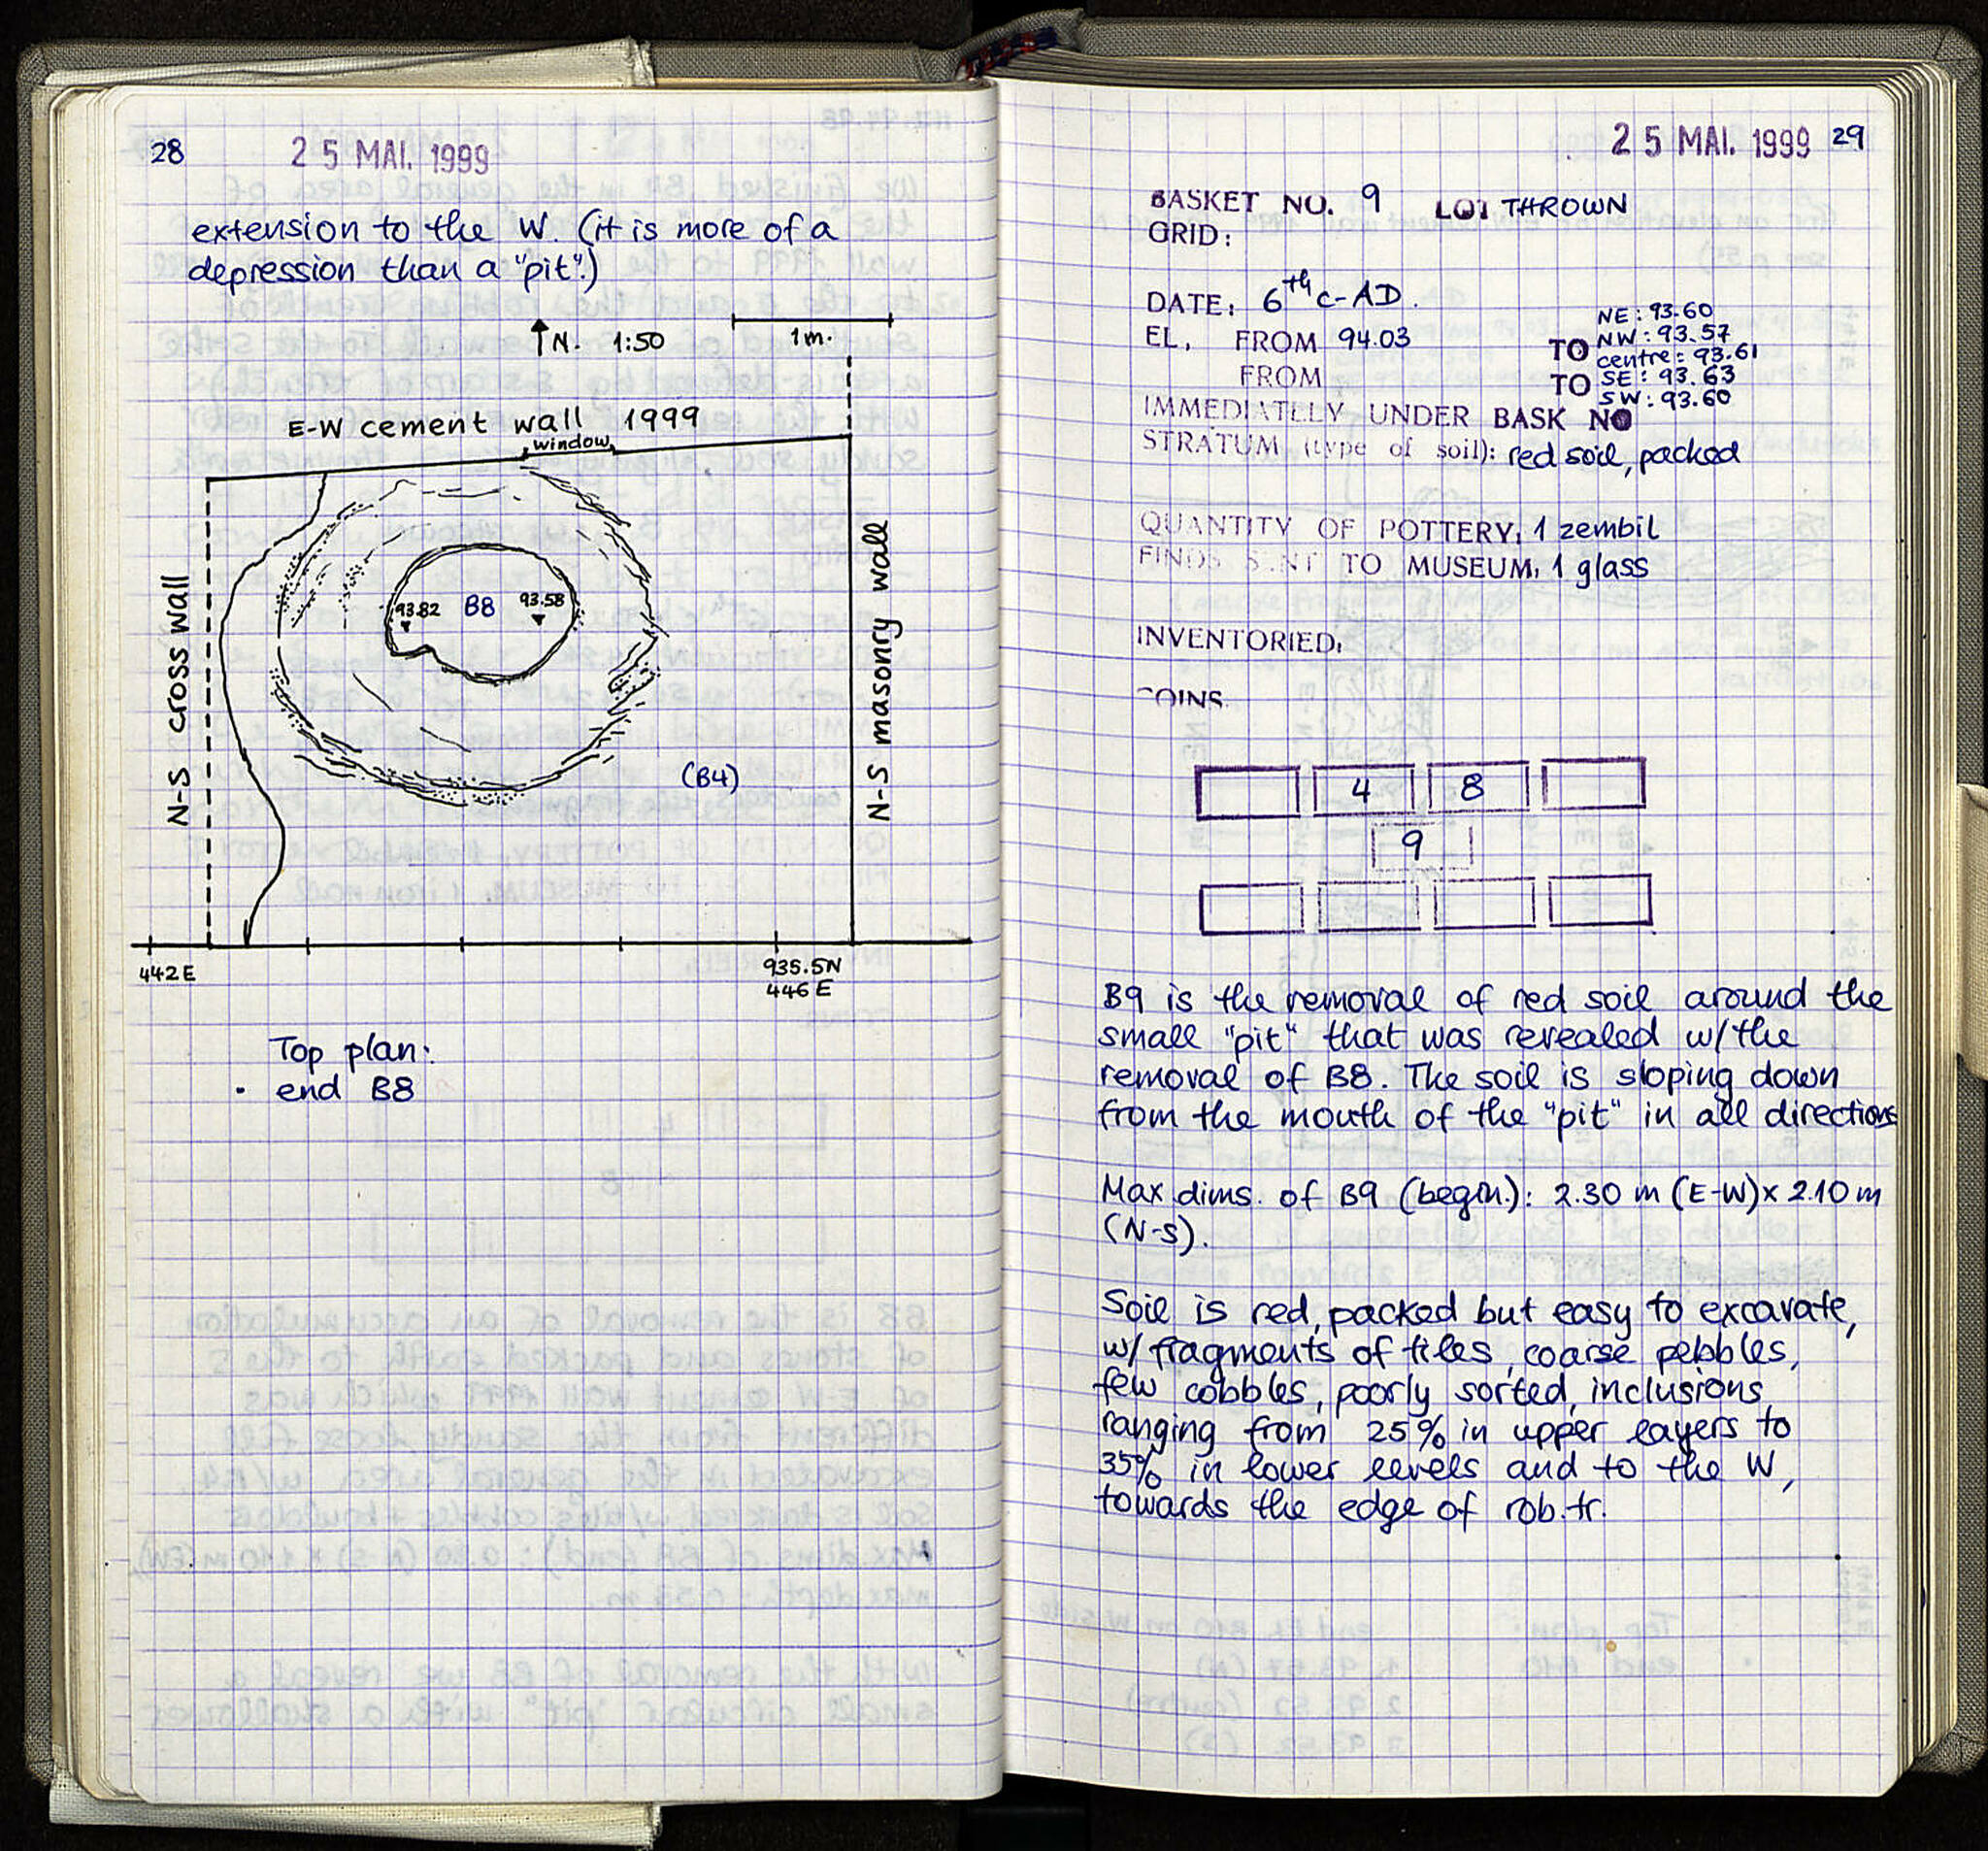 28
25 MAI. 1999
extension to the W. (it is more of a
depression than a "pit".)
N. 1:50
1m.
E-W cement wall 1999
window
N-S cross wall
93.82
B8
93.58
N-S masonry wall
(B4)
442E
935.5N
446E
Top plan:
• end B8
25 MAI. 1999
29
BASKET NO. 9 LOT THROWN
GRID:
DATE: 6th c-AD.
EL. FROM 94.03 TO
NE: 93.60
NW: 93.57
centre: 93.61
FROM TO
SE: 93.63
SW: 93.60
IMMEDIATELY UNDER BASK NO
STRATUM (type of soil): red soil, packed
QUANTITY OF POTTERY, 1 zembil
FINDS SENT TO MUSEUM, 1 glass
INVENTORIED,
COINS
4 8
9
B9 is the removal of red soil around the
small "pit" that was revealed w/ the
removal of B8. The soil is sloping down
from the mouth of the "pit" in all directions
Max dims. of B9 (begin.): 2.30 m (E-W) x 2.10 m
(N-S).
Soil is red, packed but easy to excavate,
w/ fragments of tiles, coarse pebbles,
few cobbles, poorly sorted, inclusions
ranging from 25% in upper layers to
35% in lower levels and to the W,
towards the edge of rob. tr.